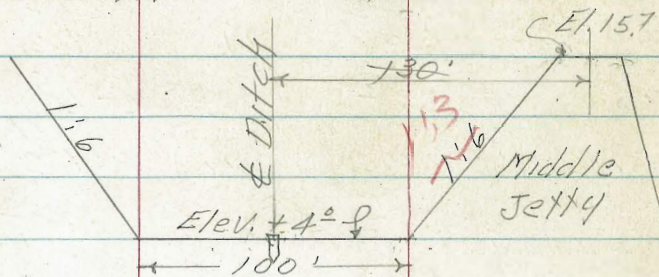 El. 15.7
130'
℄ Ditch
1:6
1:3
1:6
Middle
Jetty
Elev. +4.0 ft
100'